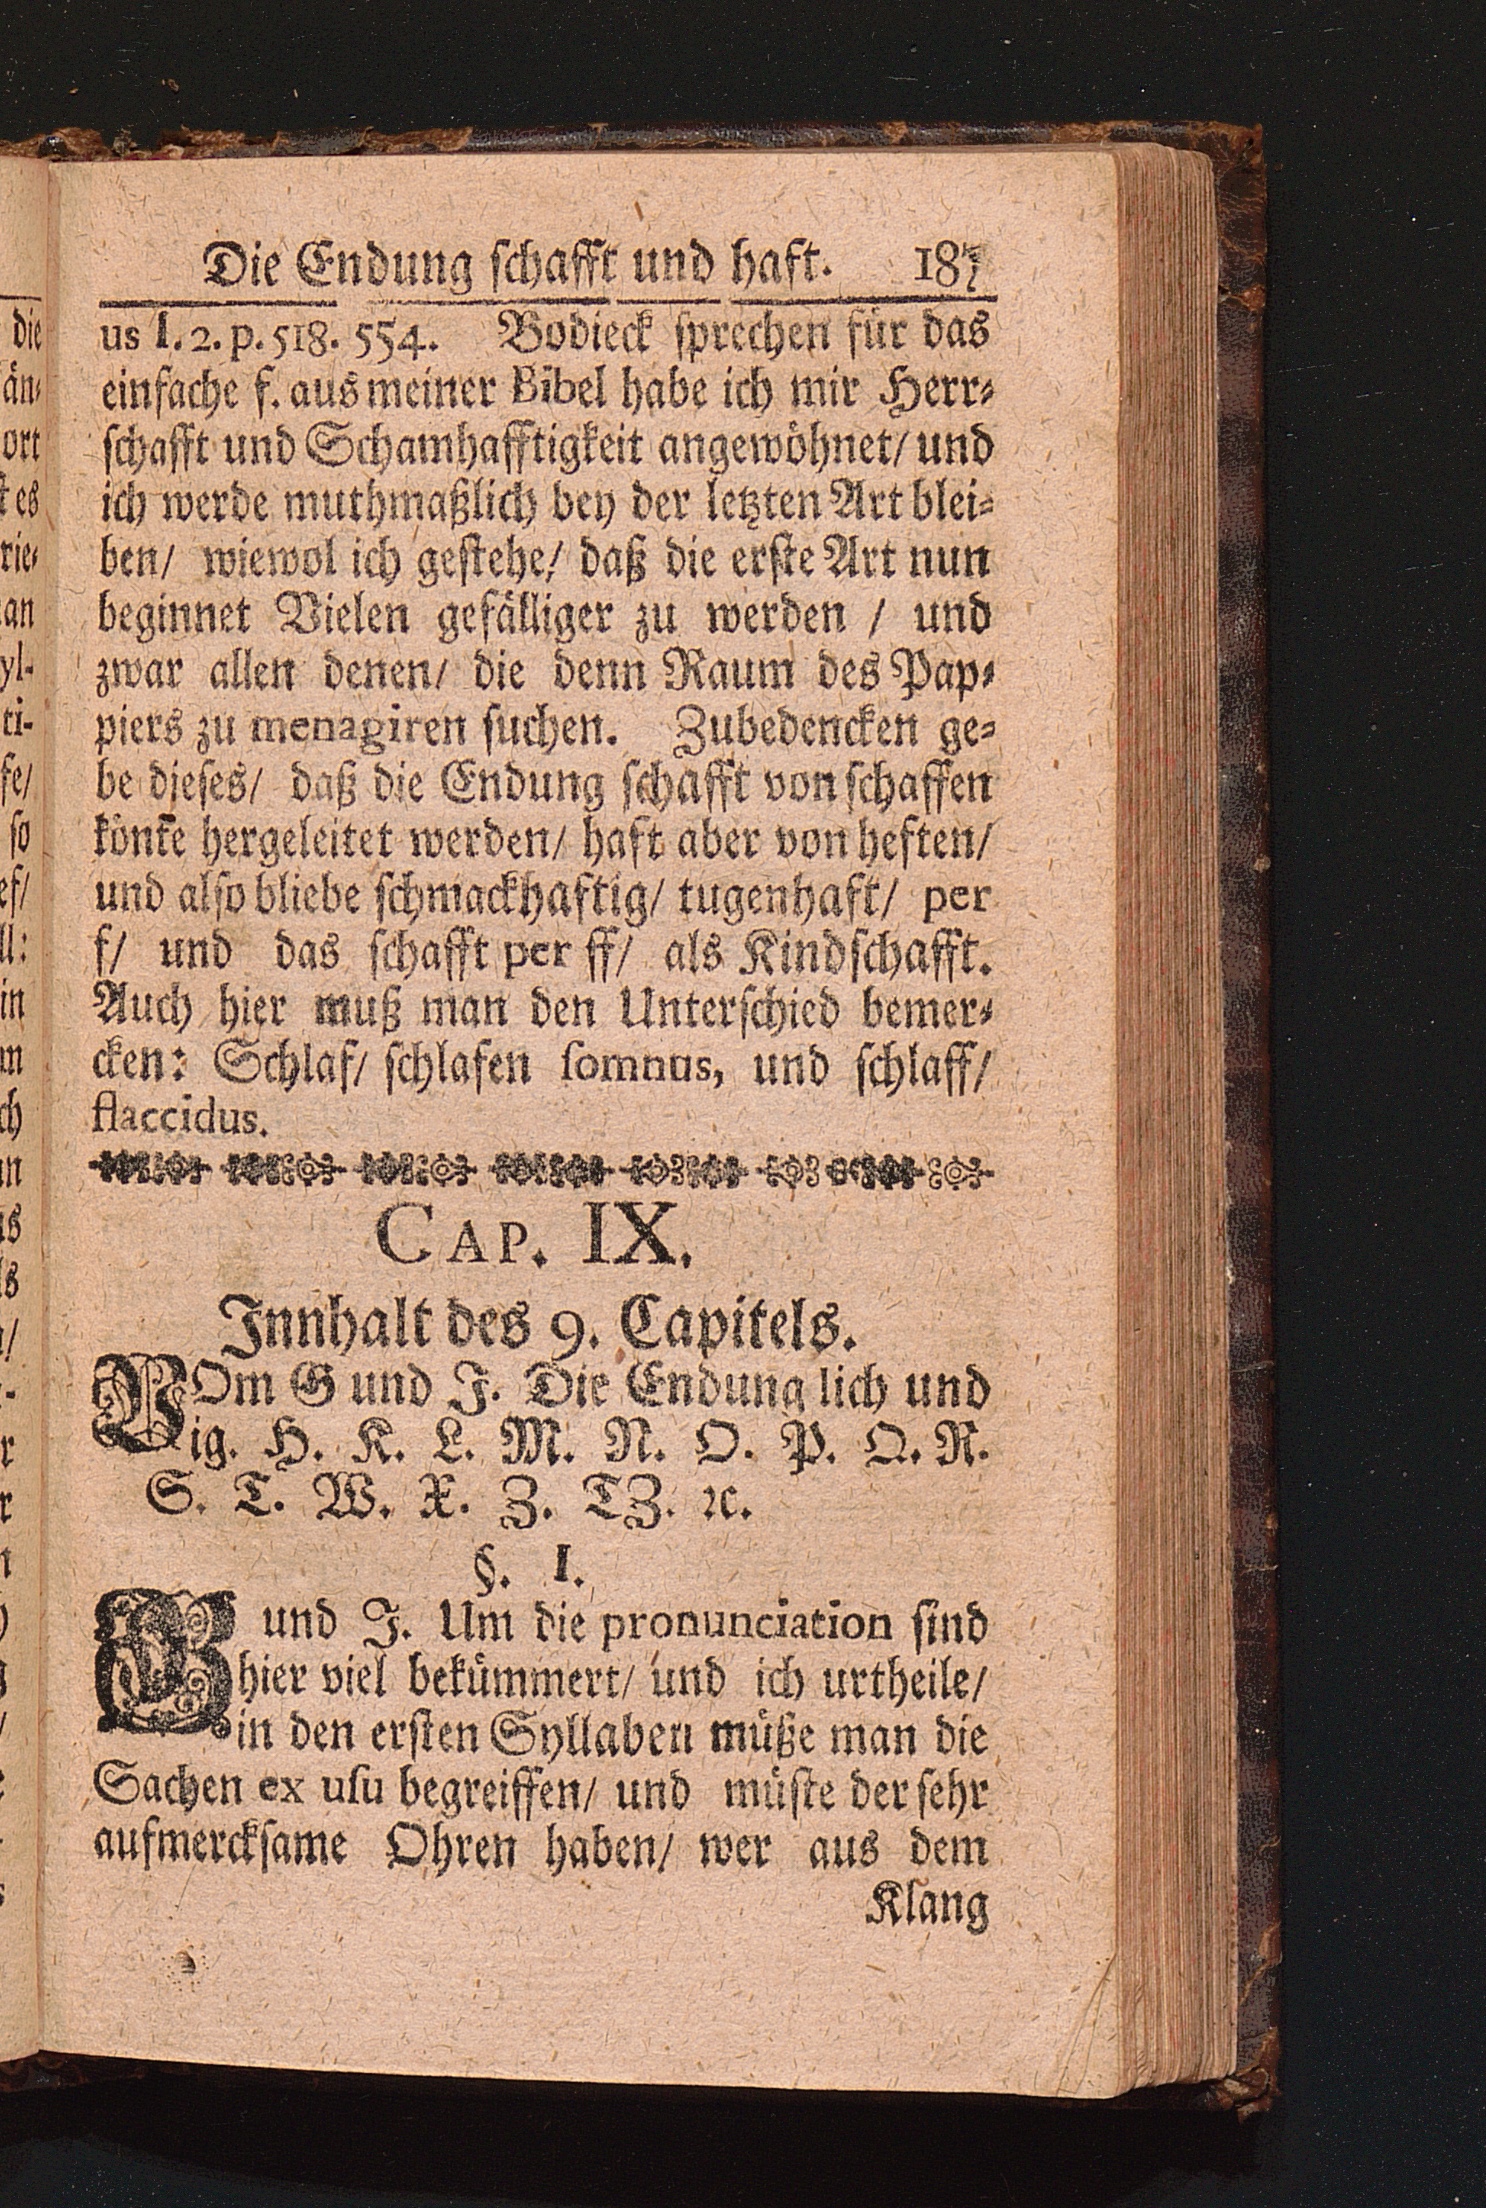 Die Endung ſchafft und haft. 187
us l. 2. p. 518. 554. Bodieck ſprechen für das
einfache f. aus meiner Bibel habe ich mir Herr⸗
ſchafft und Schamhafftigkeit angewöhnet/ und
ich werde muthmaßlich bey der letzten Art blei⸗
ben/ wiewol ich geſtehe/ daß die erſte Art nun
beginnet Vielen gefälliger zu werden / und
zwar allen denen/ die denn Raum des Pap⸗
piers zu menagiren ſuchen. Zubedencken ge⸗
be dieſes/ daß die Endung ſchafft von ſchaffen
könte hergeleitet werden/ haft aber von heften/
und alſo bliebe ſchmackhaftig/ tugenhaft/ per
f/ und das ſchafft per ff/ als Kindſchafft.
Auch hier muß man den Unterſchied bemer⸗
cken: Schlaf/ ſchlafen ſomnus, und ſchlaff/
flaccidus.
CAP. IX.
Innhalt des 9. Capitels.
VOm G und J. Die Endung lich und
ig. H. K. L. M. N. O. P. Q. R.
S. T. W. X. Z. TZ. ꝛc.
§. I.
G und J. Um die pronunciation ſind
hier viel bekümmert/ und ich urtheile/
in den erſten Syllaben müße man die
Sachen ex uſu begreiffen/ und müſte der ſehr
aufmerckſame Ohren haben/ wer aus dem
Klang